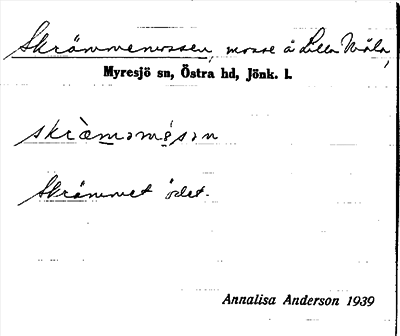 Skrämmemossen, mosse å Lilla Måla,
Myresjö sn, Östra hd, Jönk. l.
skräməmåsən
Skrämmet ödet.
Annalisa Anderson 1939